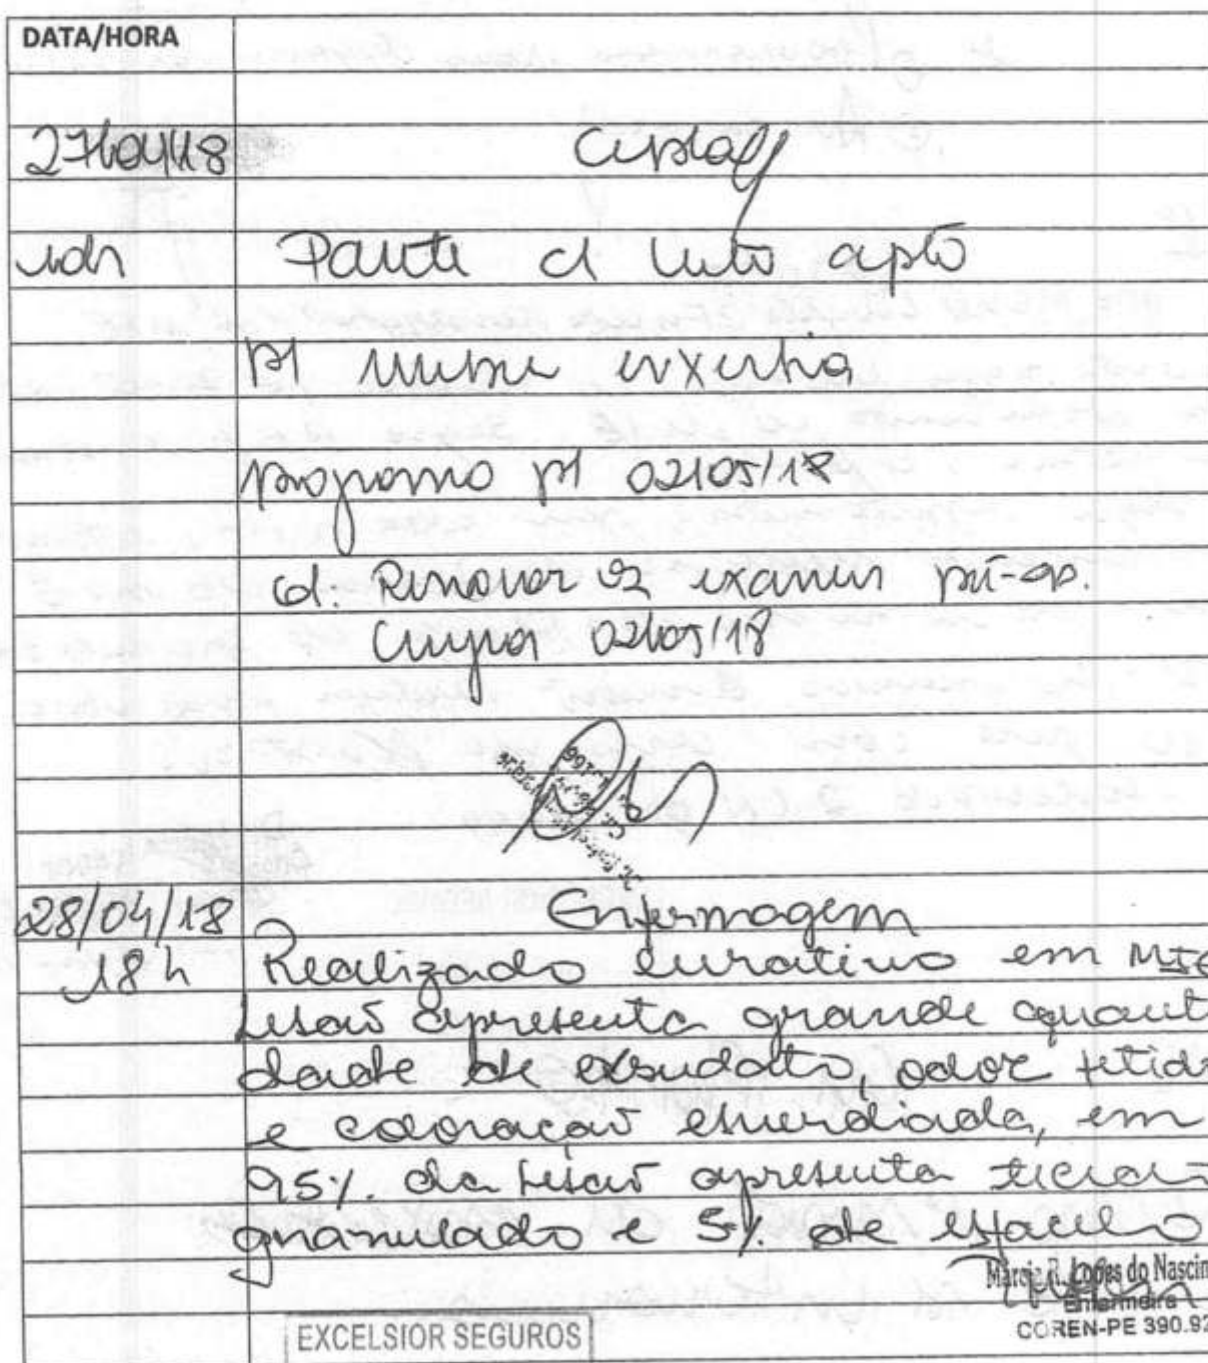 DATA/HORA
27/04/18
Paciente c/ leito apto
p/ enxertia
programo p/ 02/05/18
cd. Renovar exames pré-op.
Cirurgia 02/05/18
28/04/18 Enfermagem
18h Realizado curativo em MIE
Lesão apresenta grande quanti
dade de exsudato, odor fétido
e coloração esverdiada, em
95% da lesão apresenta tecido
granulado e 5% de esfacelo
Marcia R. Lopes do Nascim
Enfermeira
COREN-PE 390.92
EXCELSIOR SEGUROS